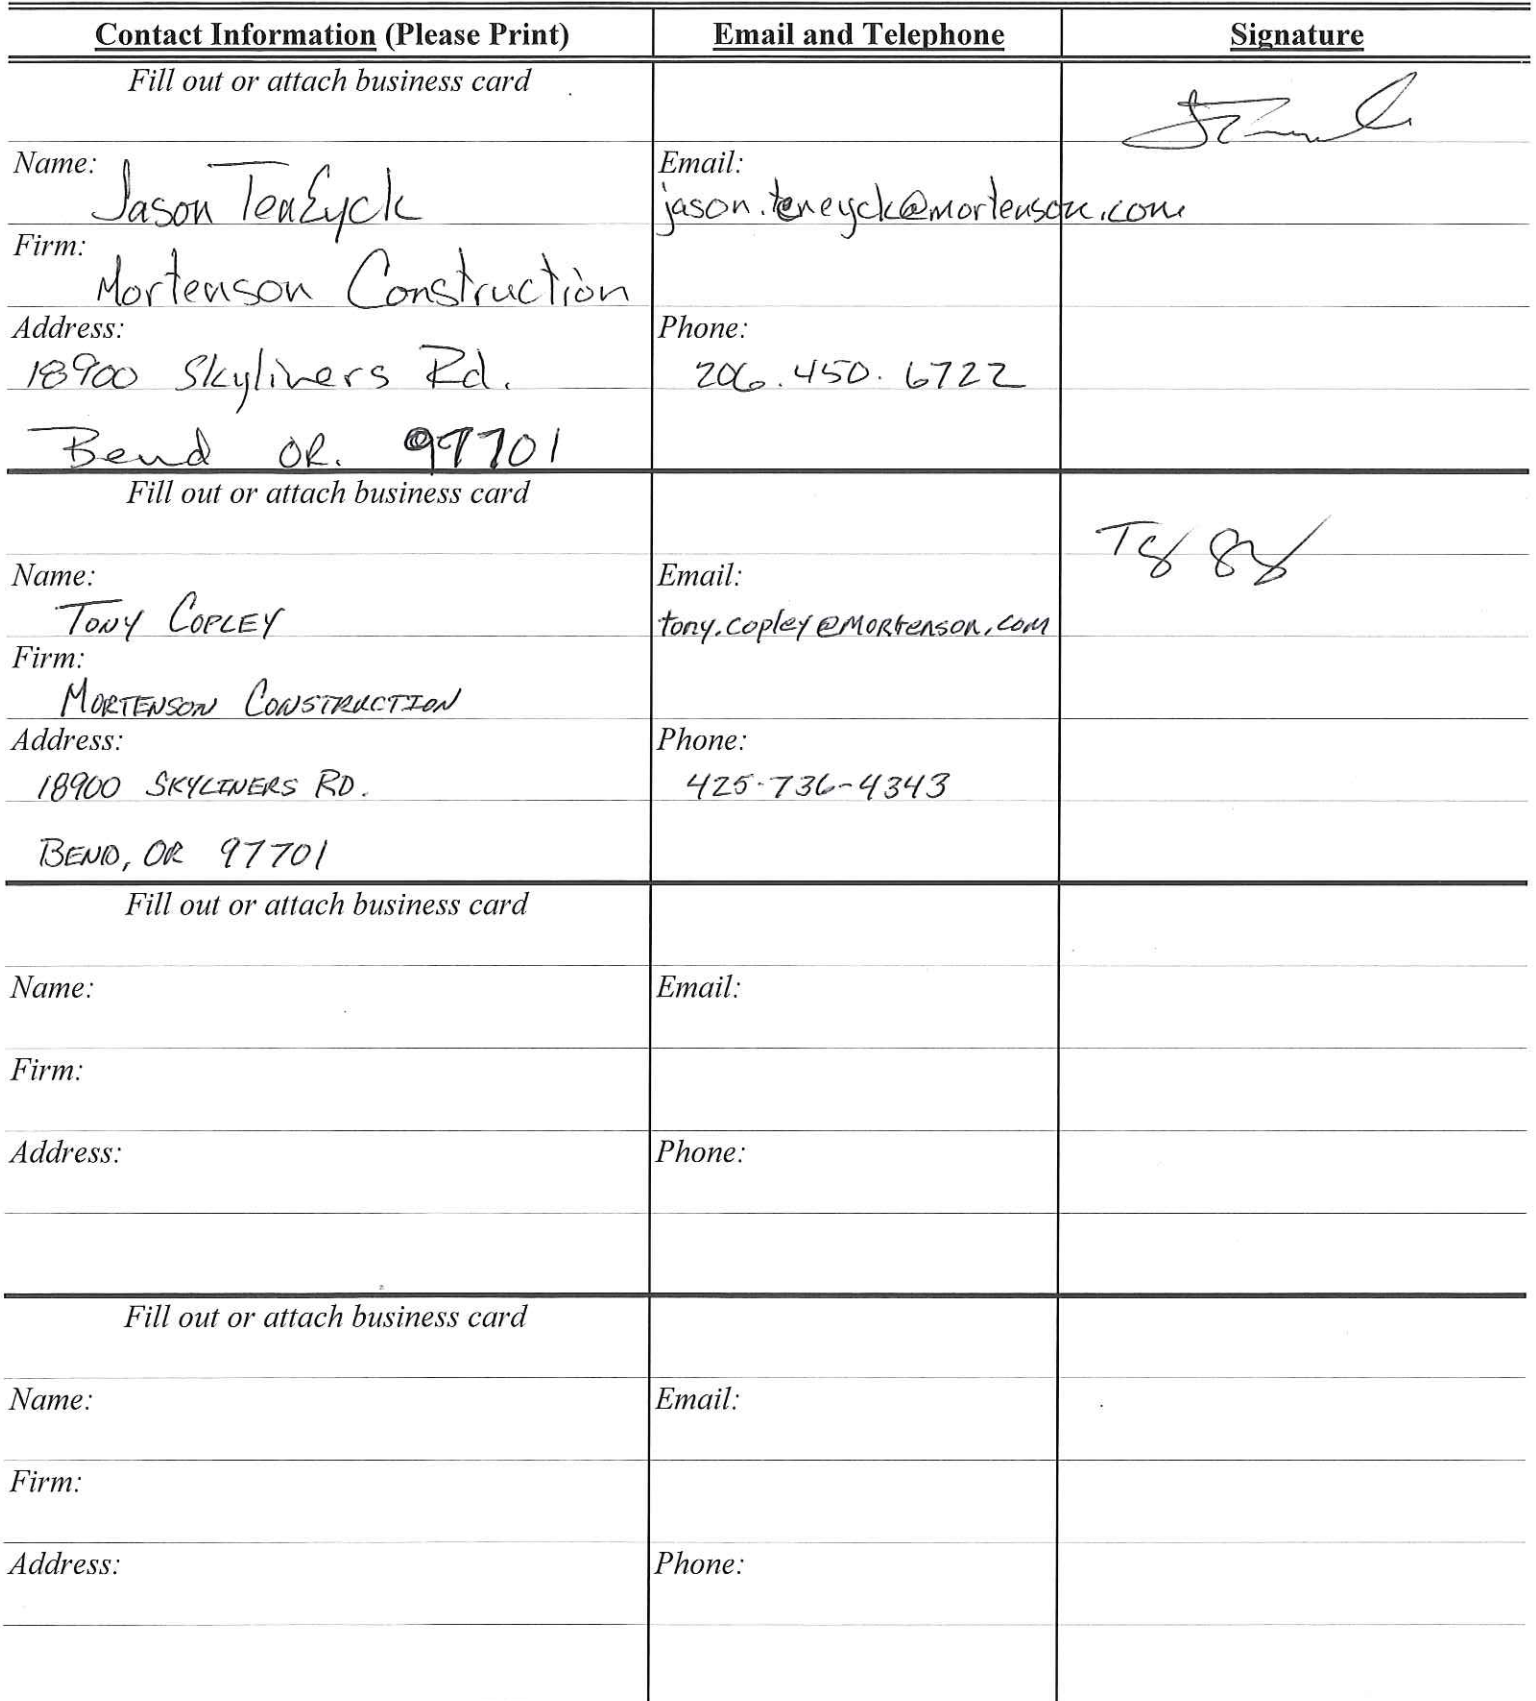 Contact Information (Please Print) Email and Telephone Signature
Fill out or attach business card
Name: Email:
Jason TenEyck jason.teneyck@mortenson.com
Firm:
Mortenson Construction
Address: Phone:
18900 Skyliners Rd. 206.450.6722
Bend OR. 97701
Fill out or attach business card
Name: Email:
TONY COPLEY tony.copley@MORtenson.com
Firm:
MORTENSON CONSTRUCTION
Address: Phone:
18900 SKYLINERS RD. 425-736-4343
BEND, OR 97701
Fill out or attach business card
Name: Email:
Firm:
Address: Phone:
Fill out or attach business card
Name: Email:
Firm:
Address: Phone: